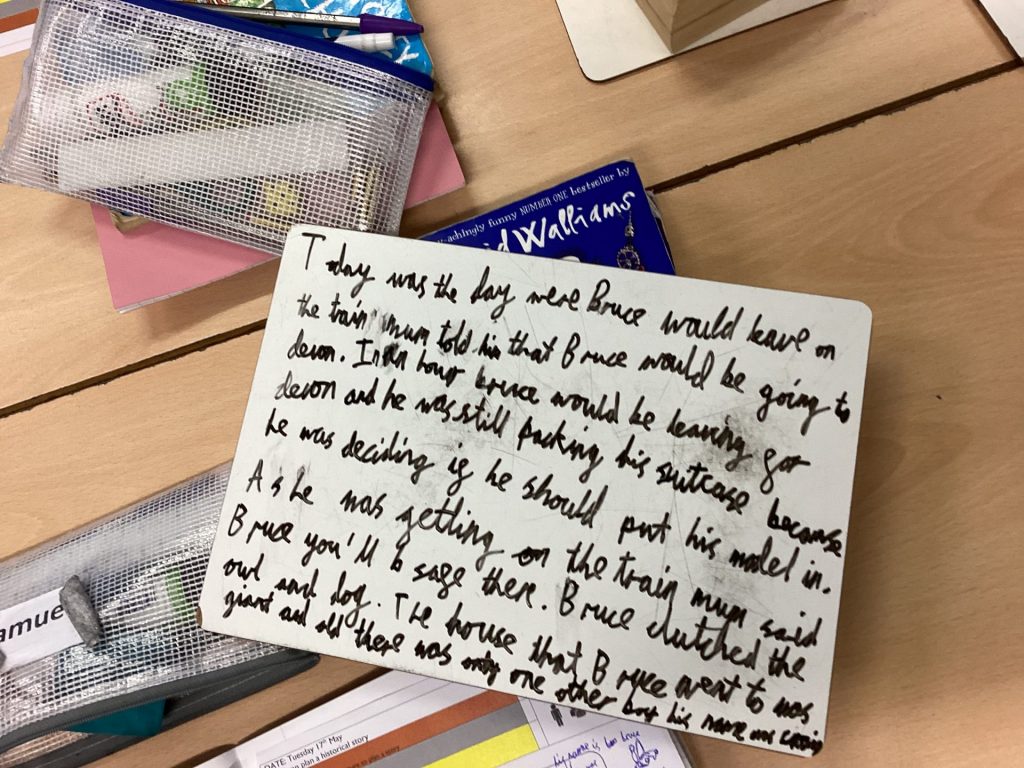 achingly funny NUMBER ONE bestseller by
id Walliams
Today was the day were Bruce would leave on
the train mum told him that Bruce would be going to
devon. In an hour bruce would be leaving for
devon and he was still packing his suitcase because
he was deciding if he should put his model in.
As he was getting on the train mum said
Bruce you'll b safe there. Bruce clutched the
owl and dog. The house that Bruce went to was
giant and old there was only one other boy his name was
amue
DATE: Tuesday 17th May
plan a historical story
his name is